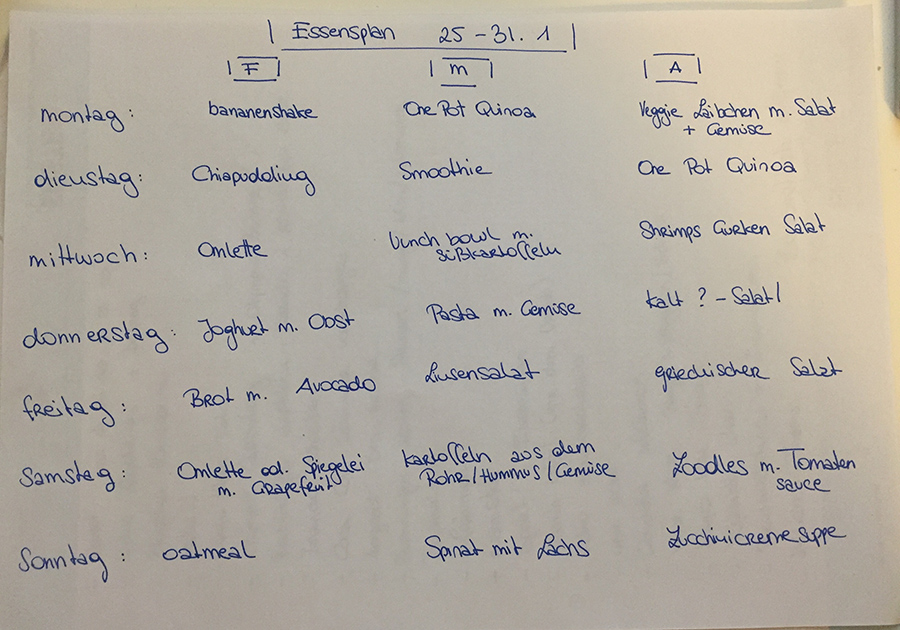 Essensplan 25-31.1
F M A
montag: bananenshake One Pot Quinoa Veggie Laibchen m. Salat
+ Gemüse
dienstag: Chiapudding Smoothie One Pot Quinoa
mittwoch: Omlette lunch bowl m. Shrimps Gurken Salat
süßkartoffeln
donnerstag: Joghurt m. Obst Pasta m. Gemüse kalt? - Salat/
freitag: Brot m. Avocado Linsensalat griechischer Salat
Samstag: Omlette od. Spiegelei kartoffeln aus dem Zoodles m. Tomaten
m. Grapefruit Rohr/Hummus/Gemüse sauce
Sonntag: oatmeal Spinat mit Lachs Zucchinicremesuppe